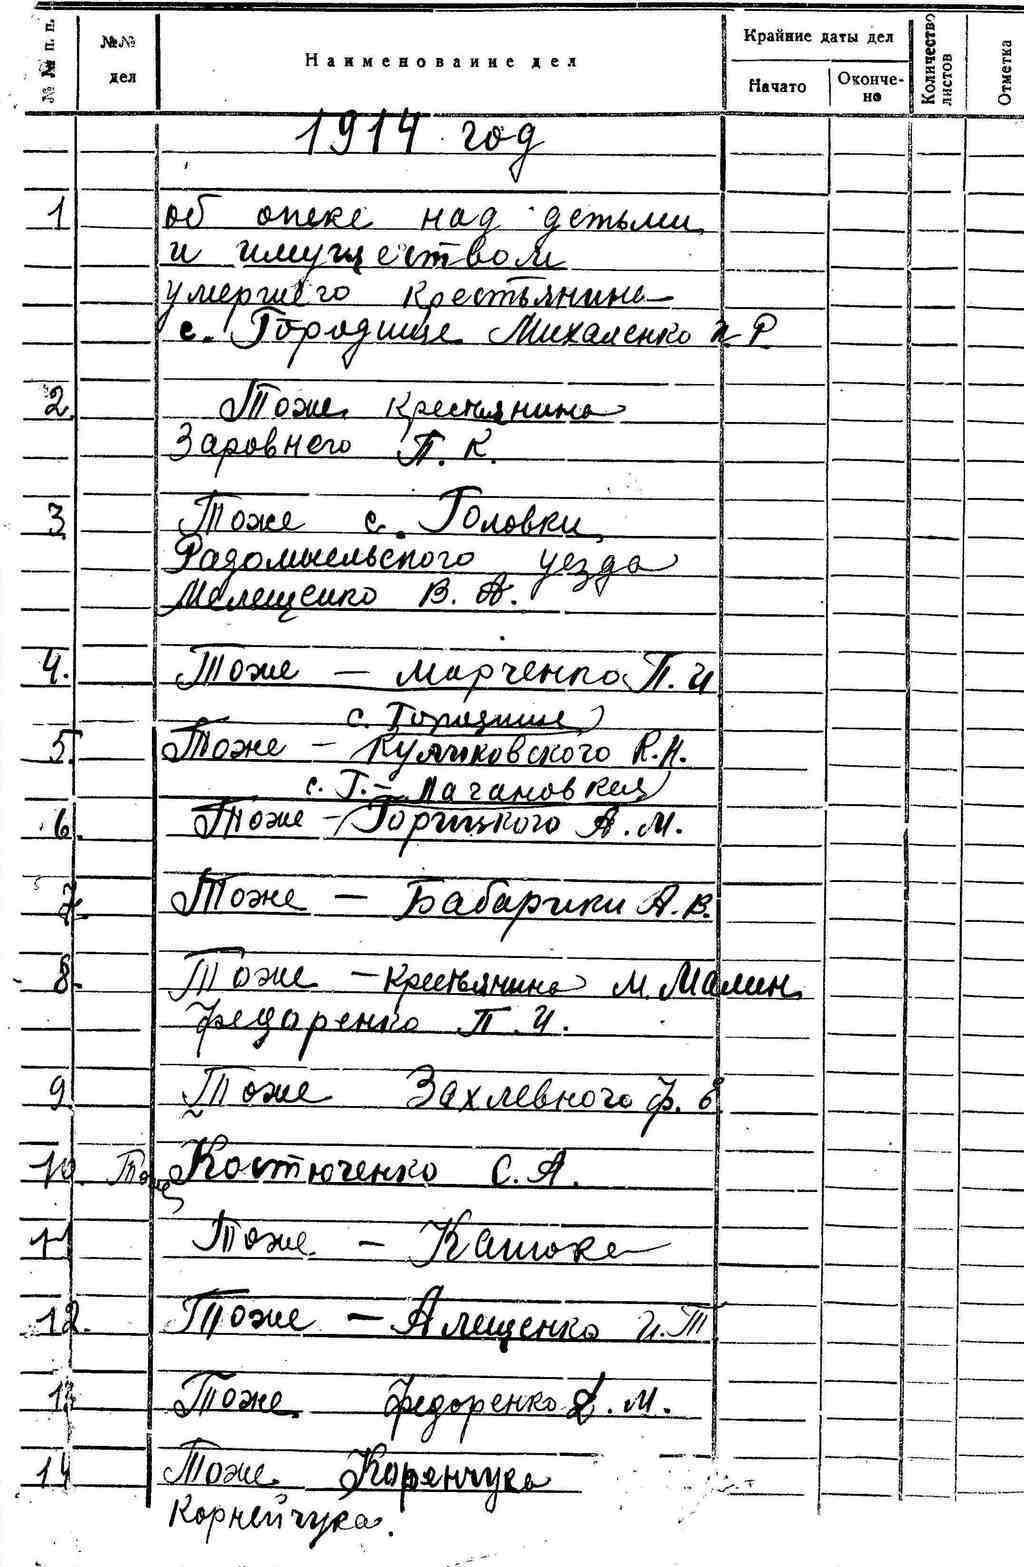 №№ п. п.
№№ дел
Наименование дел
Крайние даты дел
Начато
Окончено
Количество листов
Отметка
1914 год
1 об опеке над детьми
и имуществом
умершего крестьянина
с. Городище Михаленко Р
2. Тоже крестьянина
Заровнего П. К.
3 Тоже с. Головки
Радомысльского уезда
Мелещенко В. А.
4. Тоже – Марченко П. И
с. Городище
5. Тоже – Куликовского К.Н.
с. Г.-Пагановкая
6. Тоже – Горицкого А. М.
7. Тоже – Бабарики А. В.
8. Тоже – крестьянина м. Малин
Федоренко П. И.
9 Тоже Захлевного Ф. Е
10. Тоже Костюченко С. А.
11 Тоже –
12. Тоже – Алещенко И. Т
13 Тоже Федоренко М.
14 Тоже Коренчука
Корнейчука.